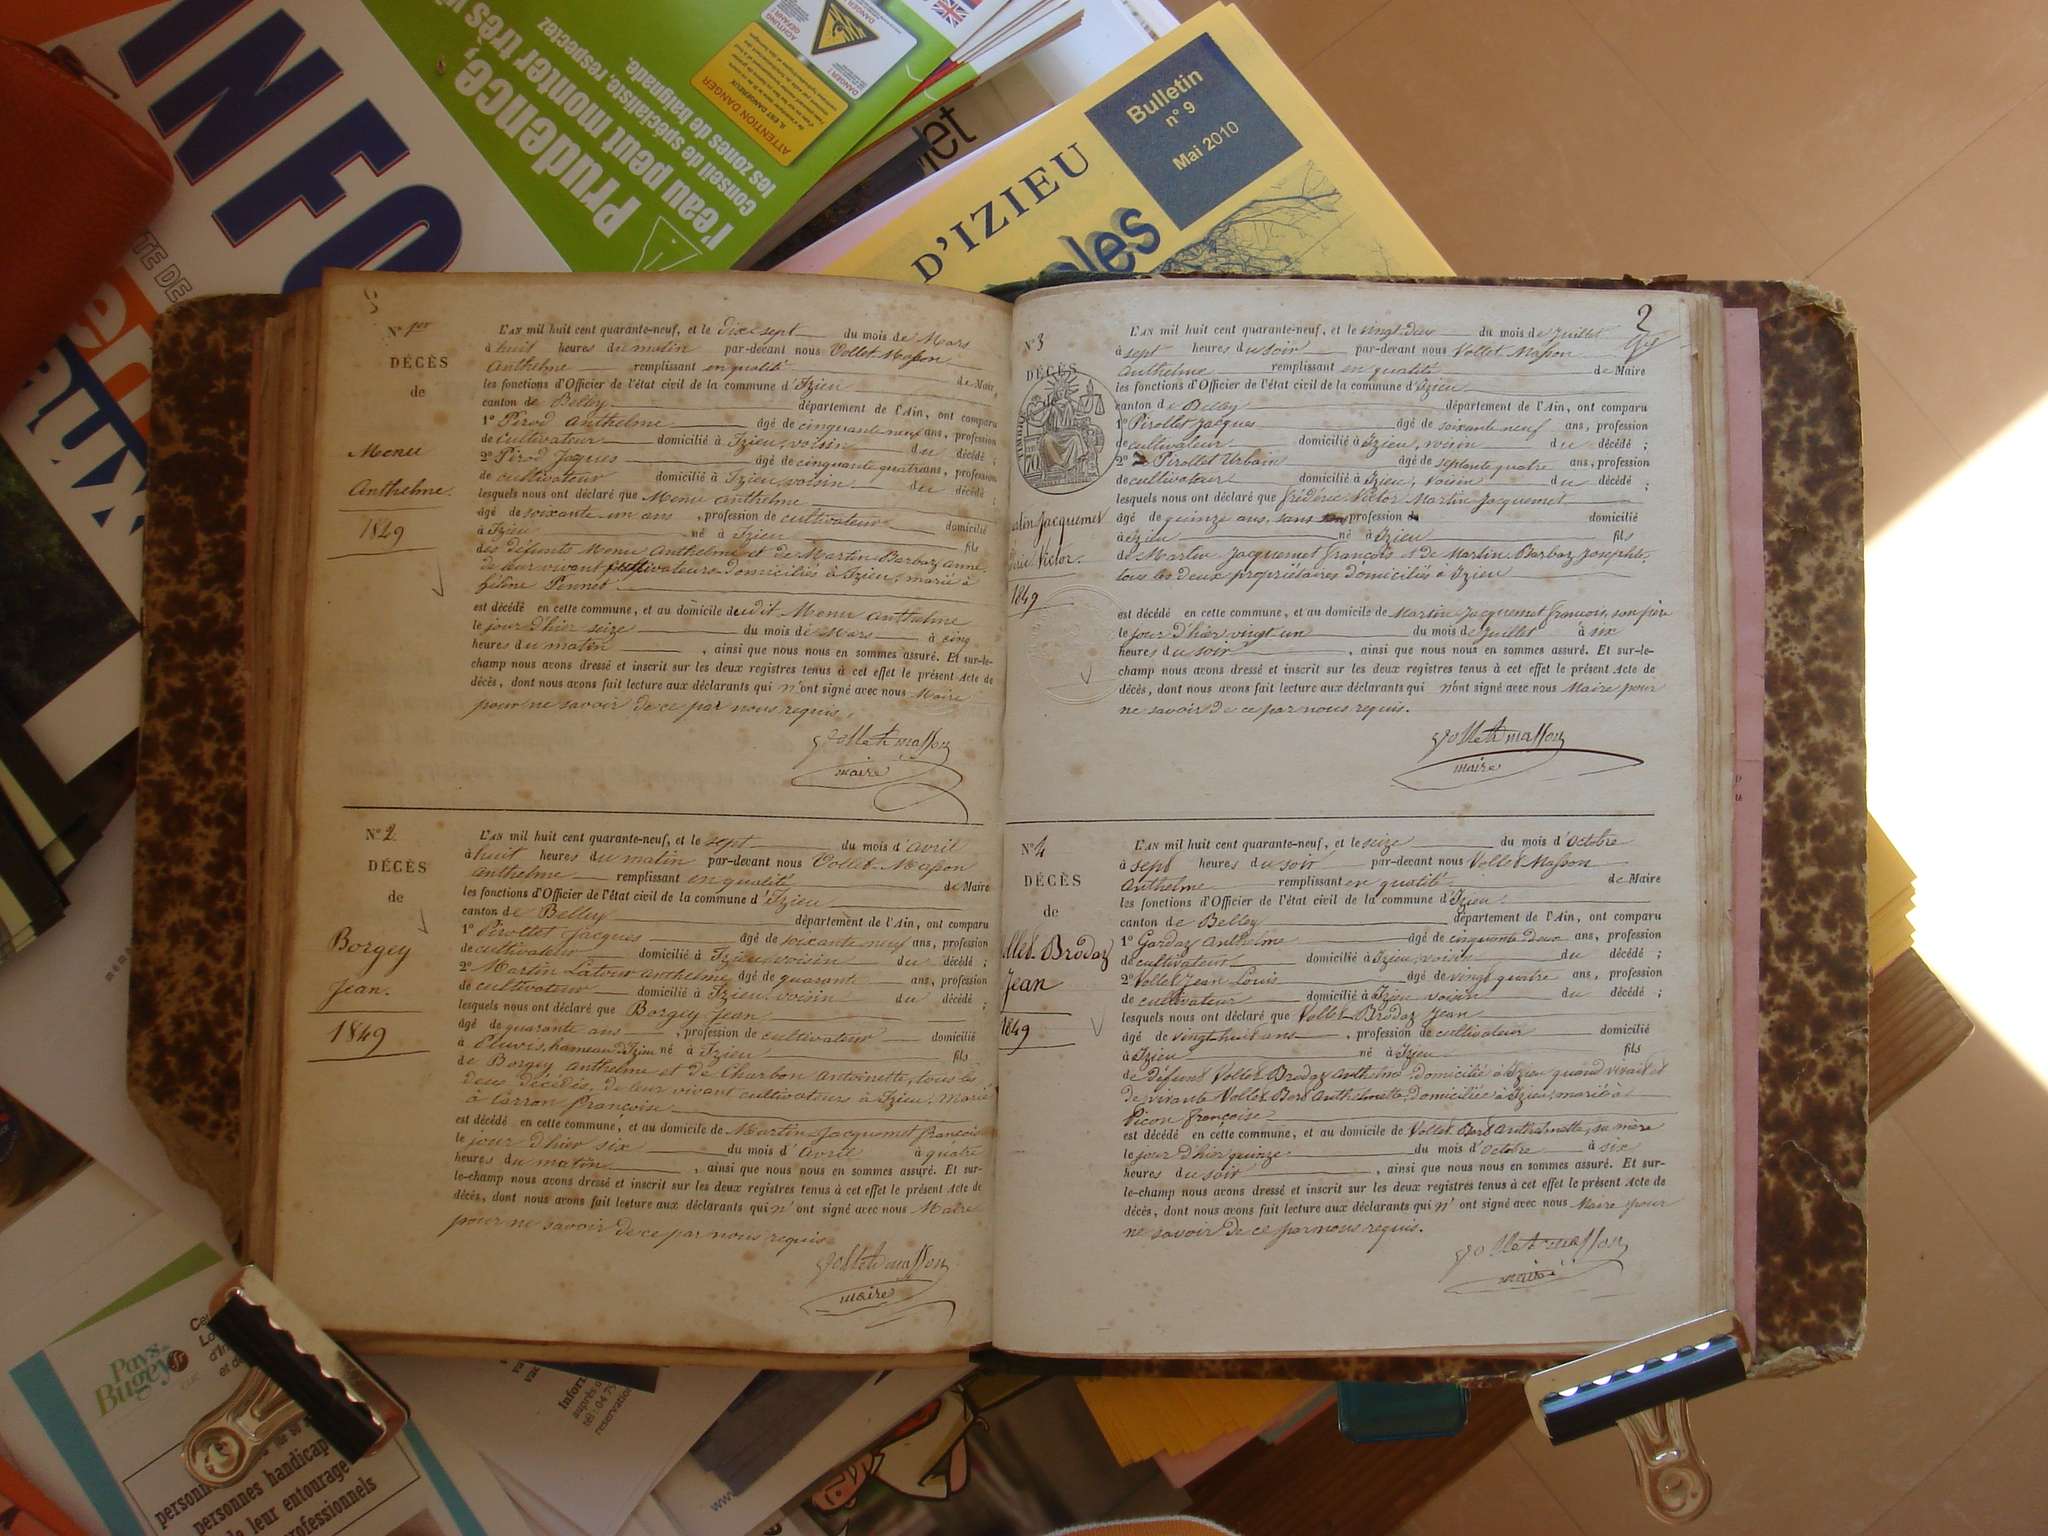 INFO
Prudence,
l'eau peut monter très vi
Conseil de spécialiste, respectez
les zones de baignade.
ATTENTION DANGER
DANGER !
D'IZIEU
Bulletin
n° 9
Mai 2010
N° 1er
DÉCÈS
de
Menu
Anthelme.
1849
L'AN mil huit cent quarante-neuf, et le dix sept du mois de Mars
à huit heures du matin par-devant nous Vollet-Masson
Anthelme remplissant en qualité de Maire
les fonctions d'Officier de l'état civil de la commune d'Izieu
canton de Belley département de l'Ain, ont comparu
1° Pirod Anthelme âgé de cinquante neuf ans, profession
de cultivateur domicilié à Izieu, voisin du décédé ;
2° Pirod Jacques âgé de cinquante quatre ans, profession
de cultivateur domicilié à Izieu, voisin du décédé ;
lesquels nous ont déclaré que Menu Anthelme
âgé de soixante-un ans, profession de cultivateur domicilié
à Izieu né à Izieu fils
des défunts Menu Anthelme et de Martin-Barbaz Anne,
de leur vivant cultivateurs domiciliés à Izieu, marié à
Pennet
est décédé en cette commune, et au domicile dudit Menu Anthelme
le jour d'hier seize du mois de Mars à cinq
heures du matin, ainsi que nous nous en sommes assuré. Et sur-le-
champ nous avons dressé et inscrit sur les deux registres tenus à cet effet le présent Acte de
décès, dont nous avons fait lecture aux déclarants qui n'ont signé avec nous Maire
pour ne savoir de ce par nous requis.
Vollet masson
maire
N° 2
DÉCÈS
de
Borgey
Jean.
1849
L'AN mil huit cent quarante-neuf, et le sept du mois d'avril
à huit heures du matin par-devant nous Vollet-Masson
Anthelme remplissant en qualité de Maire
les fonctions d'Officier de l'état civil de la commune d'Izieu
canton de Belley département de l'Ain, ont comparu
1° Pirollet Jacques âgé de soixante neuf ans, profession
de cultivateur domicilié à Izieu, voisin du décédé ;
2° Martin Latour Anthelme âgé de quarante ans, profession
de cultivateur domicilié à Izieu, voisin du décédé ;
lesquels nous ont déclaré que Borgey Jean
âgé de quarante ans, profession de cultivateur domicilié
à hameau d'Izieu né à Izieu fils
de Borgey Anthelme et de Charbon Antoinette, tous les
deux décédés, de leur vivant cultivateurs à Izieu, Marié
à Carron Françoise
est décédé en cette commune, et au domicile de Martin-Jacquemet françois
le jour d'hier six du mois d'avril à quatre
heures du matin, ainsi que nous nous en sommes assuré. Et sur-
le-champ nous avons dressé et inscrit sur les deux registres tenus à cet effet le présent Acte de
décès, dont nous avons fait lecture aux déclarants qui n'ont signé avec nous Maire
pour ne savoir de ce par nous requis.
Vollet masson
maire
2
N° 3
DÉCÈS
70
Jacquemet
Victor.
1849
L'AN mil huit cent quarante-neuf, et le vingt-deux du mois de Juillet
à sept heures du soir par-devant nous Vollet Masson
Anthelme remplissant en qualité de Maire
les fonctions d'Officier de l'état civil de la commune d'Izieu
canton de Belley département de l'Ain, ont comparu
1° Pirollet Jacques âgé de soixante neuf ans, profession
de cultivateur domicilié à Izieu, voisin du décédé ;
2° Pirollet Urbain âgé de septante quatre ans, profession
de cultivateur domicilié à Izieu, voisin du décédé ;
lesquels nous ont déclaré que frédéric Victor Martin Jacquemet
âgé de quinze ans, sans profession domicilié
à Izieu né à Izieu fils
de Martin Jacquemet françois & de Martin-Barbaz Josephte,
tous les deux propriétaires domiciliés à Izieu
est décédé en cette commune, et au domicile de Martin-Jacquemet françois, son père
le jour d'hier vingt-un du mois de Juillet à six
heures du soir, ainsi que nous nous en sommes assuré. Et sur-le-
champ nous avons dressé et inscrit sur les deux registres tenus à cet effet le présent Acte de
décès, dont nous avons fait lecture aux déclarants qui n'ont signé avec nous Maire pour
ne savoir de ce par nous requis.
Vollet masson
maire
N° 4
DÉCÈS
de
llet-Brodaz
Jean
1849
L'AN mil huit cent quarante-neuf, et le seize du mois d'Octobre
à sept heures du soir par-devant nous Vollet Masson
Anthelme remplissant en qualité de Maire
les fonctions d'Officier de l'état civil de la commune d'Izieu
canton de Belley département de l'Ain, ont comparu
1° Gardaz Anthelme âgé de cinquante deux ans, profession
de cultivateur domicilié à Izieu, voisin du décédé ;
2° Vollet Jean Louis âgé de vingt quatre ans, profession
de cultivateur domicilié à Izieu voisin du décédé ;
lesquels nous ont déclaré que Vollet-Brodaz Jean
âgé de vingt huit ans, profession de cultivateur domicilié
à Izieu né à Izieu fils
de défunt Vollet Brodaz Anthelme domicilié à Izieu quand vivait et
de vivante Vollet-Bert Anthelmette, domiciliée à Izieu, marié à
Picon françoise
est décédé en cette commune, et au domicile de Vollet-Bert Anthelmette, sa mère
le jour d'hier quinze du mois d'Octobre à six
heures du soir, ainsi que nous nous en sommes assuré. Et sur-
le-champ nous avons dressé et inscrit sur les deux registres tenus à cet effet le présent Acte de
décès, dont nous avons fait lecture aux déclarants qui n'ont signé avec nous Maire pour
ne savoir de ce par nous requis.
Vollet masson
maire
Pays de
Bugey
personnes handicap
leur entourage
rofessionnels